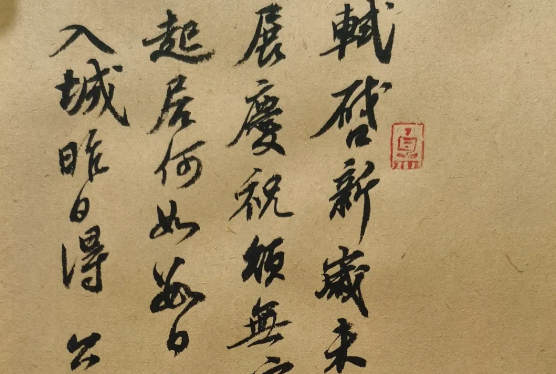 軾啓新歲未
展慶祝頌無
起居何如數日
入城昨日得公